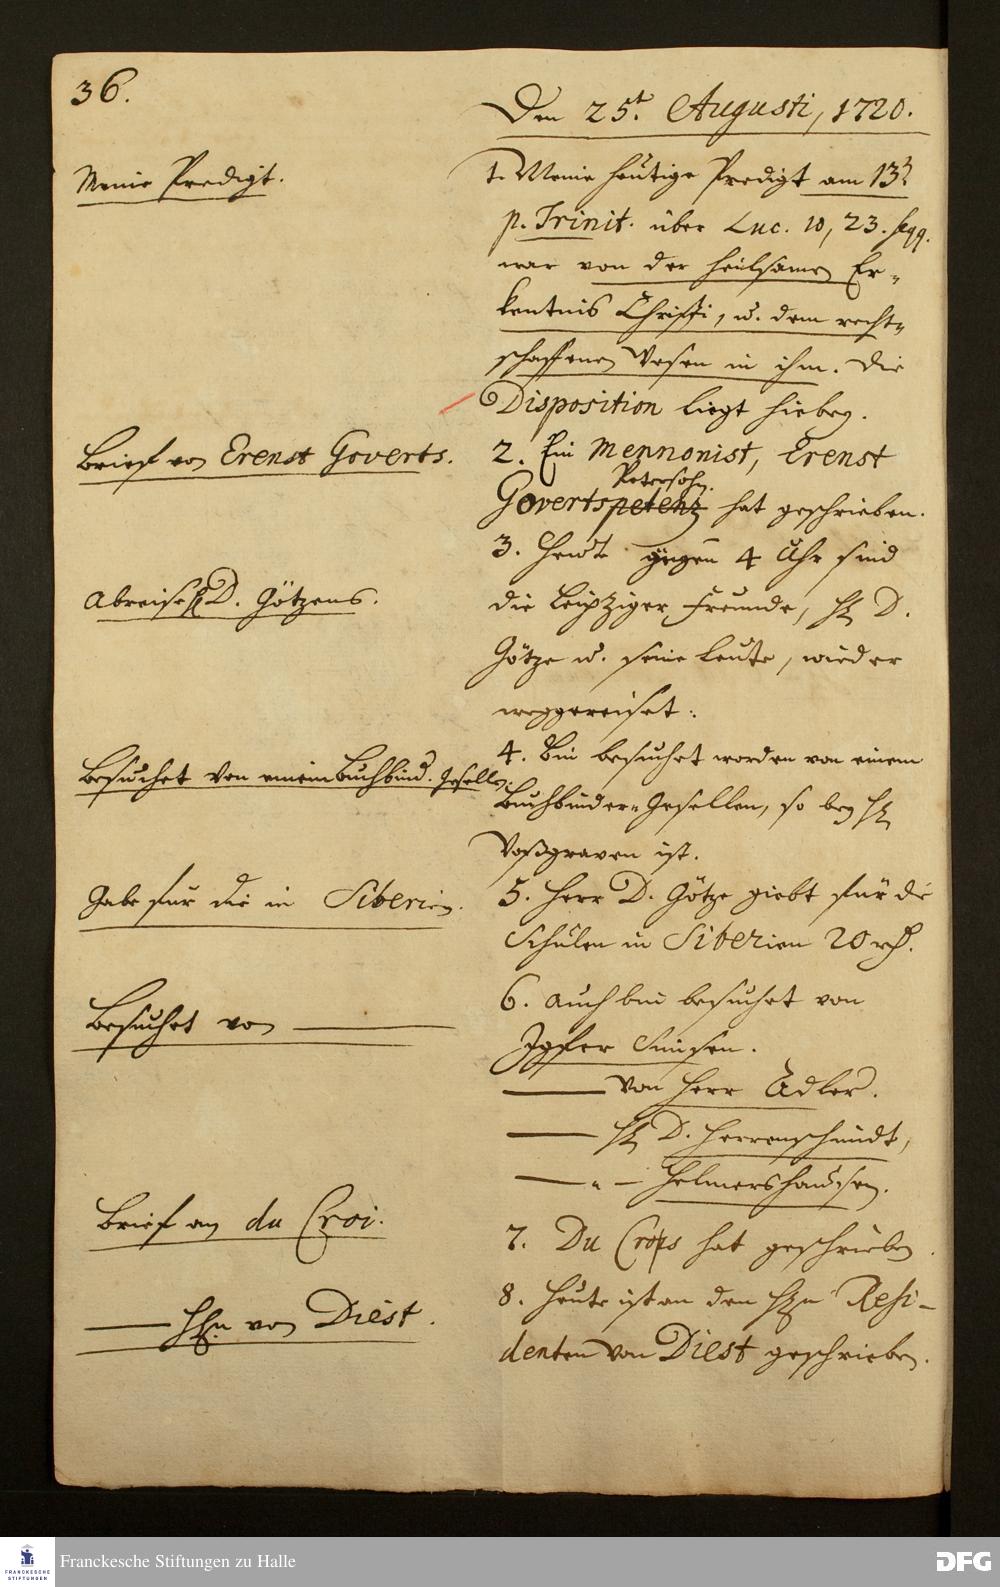 36.
Den 25.t Augusti, 1720.
Meine Predigt.
1. Meine heutige Predigt am 13.
p. Trinit. über Luc. 10, 23. seqq.
war von der heilsamen Er-
kentnis Christi, u. dem recht-
schaffenen Wesen in ihm. Die
Disposition liegt hiebey.
Brief von Erenst Goverts.
2. Ein Mennonist, Erenst
Petersohn.
Goverts petenz hat geschrieben.
Abreise H. D. Götzens.
3. Heut gegen 4 Uhr sind
die Leipziger Freunde, H. D.
Götze u. seine Leute, wieder
weggereiset.
Besuchet von einem Buchbind. Gesellen.
4. Bin besuchet worden von einem
Buchbinder-Gesellen, so bey H.
Voßgraven ist.
Gabe für die in Siberien.
5. Herr D. Götze giebt für die
Schulen in Siberien 20 rh.
Besuchet von
6. Auch bin besuchet von
Jgfer
von Herr Adler.
H. D. Herrenschmidt,
Helmershausen.
Brief an du Croi.
7. Du Croys hat geschrieben.
HEn. von Diest.
8. Heute ist an den HEn Resi-
denten von Diest geschrieben.
FRANCKESCHE
STIFTUNGEN
Franckesche Stiftungen zu Halle
DFG